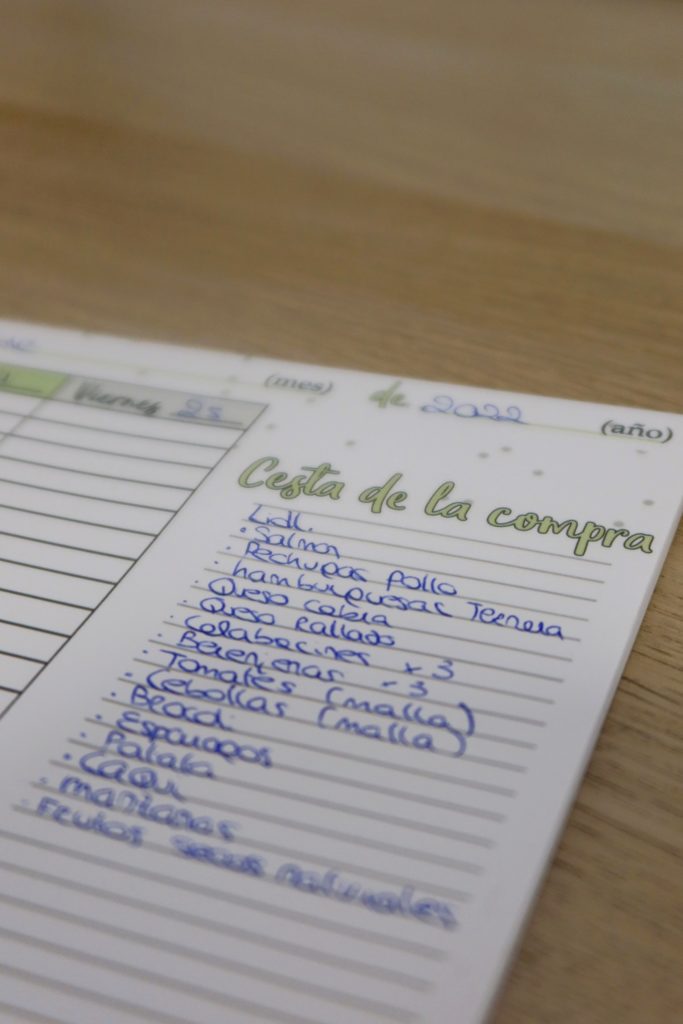 (mes) de 2022 (año)
Viernes 25
Cesta de la compra
Lidl.
· Salmon
· Pechugas Pollo
· hamburguesas Ternera
· Queso cabra
· Queso Rallado
· Calabacines x 3
· Berenjenas - 3
· Tomates (malla)
· Cebollas (malla)
· Brocoli
· Esparragos
· Patata
· CAQUi
· manzanas
· Frutos secos naturales